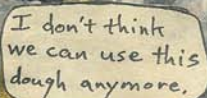 I don't think
we can use this
dough anymore.